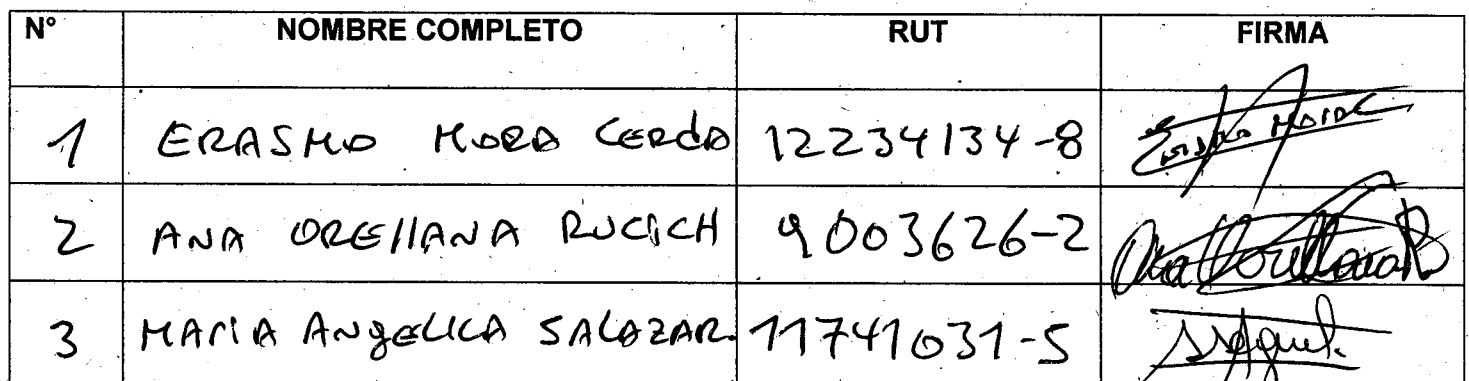 N° NOMBRE COMPLETO RUT FIRMA
1 ERASMO MORA CERDA 12234134-8
2 ANA ORELLANA RUCICH 9003626-2 Ana Orellana R
3 MARIA ANGELICA SALAZAR. 11741031-5